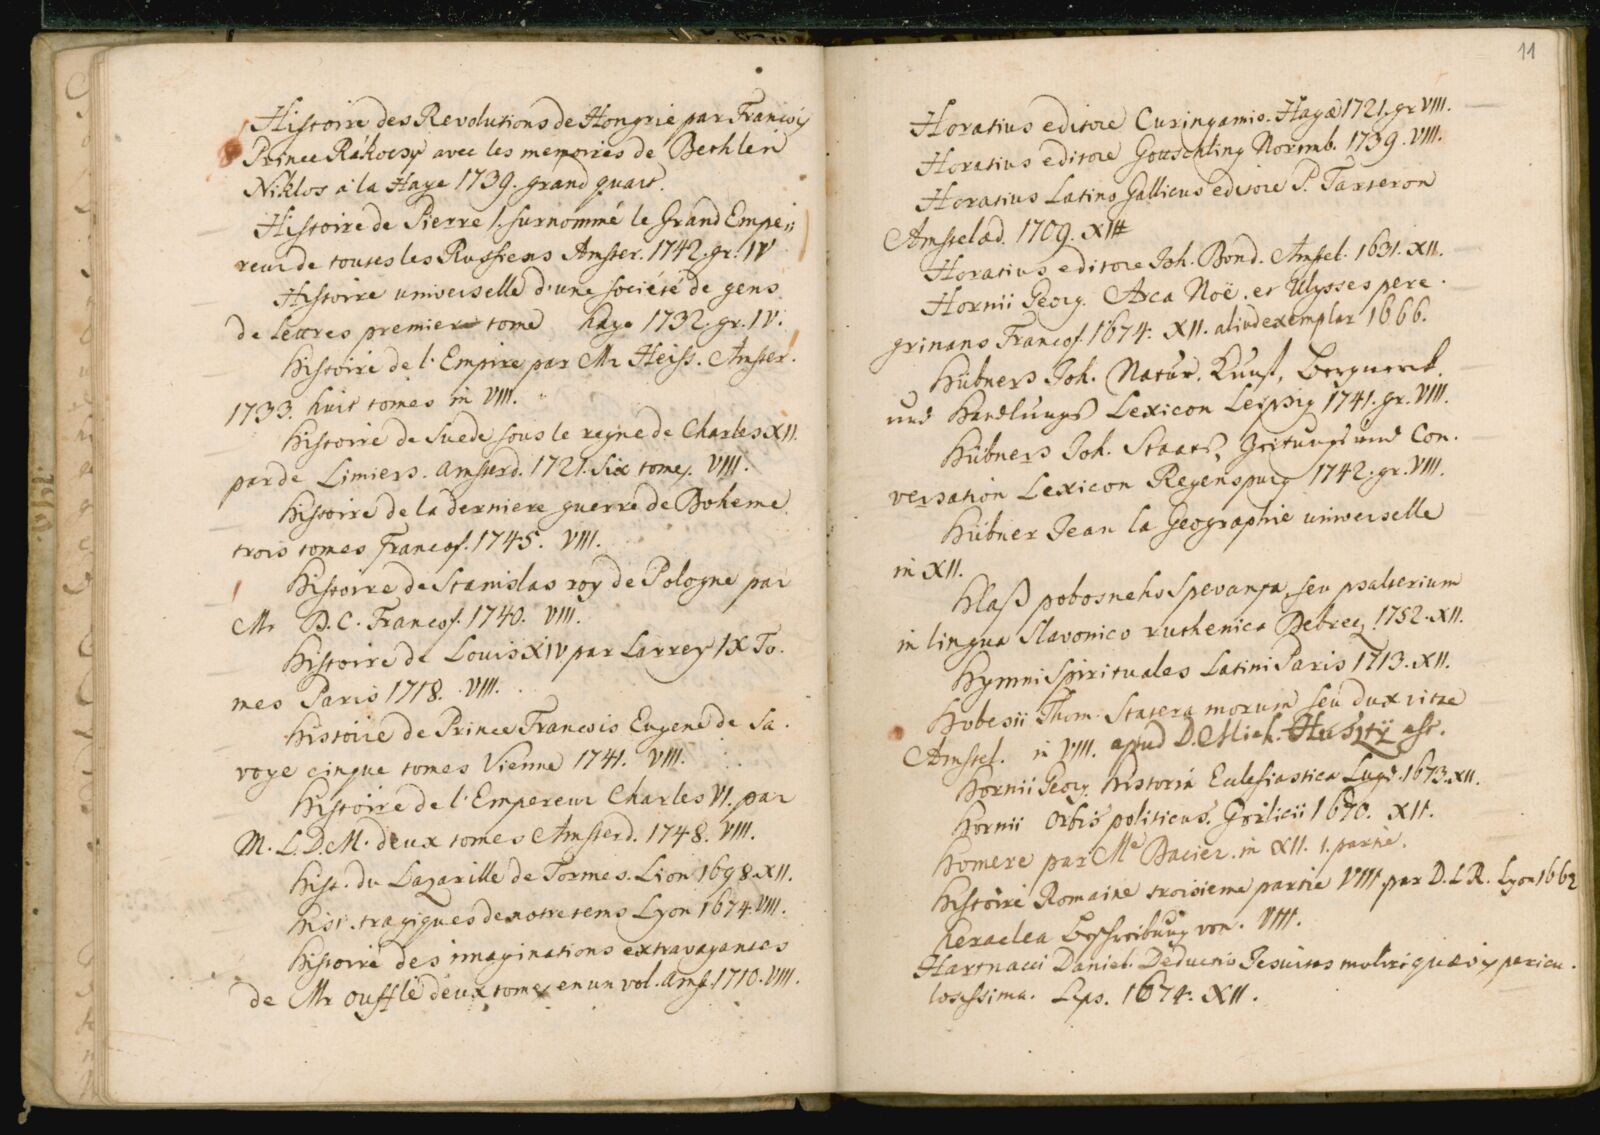 Histoire des Revolutions de Hongrie par Francois
Prince Rákoczy avec les memoires de Bethlen
Niklos a la Haye 1739. grand quart.
Histoire de Pierre I. surnommé le Grand Empe„
reur de toutes les Russiens Amster. 1742. gr. IV
Histoire universelle d'une société de gens
de lettres premier tome haye 1732. gr. IV.
histoire de l'Empire par Mr Heiss. Amster.
1733. huit tomes in VIII.
histoire de Suede sous le regne de Charles XII.
par de Limiers. Amsterd. 1721. six tomes. VIII.
histoire de la derniere guerre de Boheme
trois tomes Francof. 1745. VIII.
histoire de Stanislas roy de Pologne par
Mr D. C. Francof. 1740. VIII.
histoire de Louis XIV par Larrey IX To.
mes Paris 1718. VIII.
histoire de Prince Francois Eugene de Sa.
voye cinque tomes Vienne 1741. VIII.
histoire de l'Empereur Charles VI. par
M. L. D. M. deux tomes Amsterd. 1748. VIII.
hist. du Lazarille de Tormes. Lion 1698. XII.
hist. tragiques de notre tems Lyon 1674. VIII.
histoire des imaginations extravagantes
de Mr Oufflé deux tomes en un vol. Ams. 1710. VIII.
11
Horatius editore Cuningamio. Hagæ 1721. gr VIII.
Horatius editore Gottschling Normb. 1739. VIII.
Horatius Latino Gallicus editore P. Tarteron
Amstelæd. 1709. XII
Horatius editore Joh. Bond. Amstel. 1631. XII.
Hornii Georg. Arca Noë. et Ulysses pere.
grinans Francof. 1674. XII. aliud exemplar 1666.
Hübners Joh. Natur. Kunst, Bergwerck.
und Handlungs Lexicon Leipzig 1741. gr. VIII.
Hübners Joh. Staats, Zeitungs und Con.
versation Lexicon Regenspurg 1742. gr. VIII.
Hübner Jean la Geographie universelle
in XII.
Hlaß pobosneho Spevanja, seu psalterium
in lingua Slavonico ruthenica Debrec. 1752. XII.
Hymni Spirituales Latini Paris 1713. XII.
Hobesii Thom. Statera morum seu dux vitæ
Amstel. in VIII. apud D. Mich. Huszty est.
Hornii Georg. historia Eclesiastica Lugd. 1673. XII.
hornii Orbis politicus. Görlicii 1670. XII.
homere par Me Dacier. in XII. 1. partie.
histoire Romaine troisieme partie VIII par D. L R. Lyon 1662
heraclea Beschreibung von. VIII.
Hartnacci Daniel. Jesuitas moliri quævis pericu.
losissima. Lips. 1674. XII.